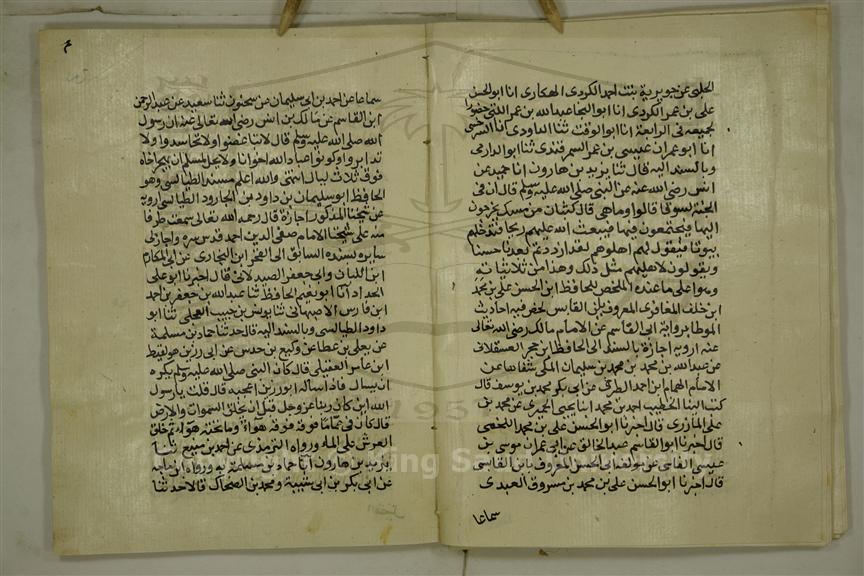 الحلبي عن جويرية بنت احمد الكردي الهكاري انا ابو الحسن
علي بن عمر الكردي انا ابو النجا عبدالله بن عمر اللتي حضورا
لجميعه في الرابعة انا ابو الوقت ثنا الداودي انا السرخسي
انا ابو عمران عيسى بن عمر السمرقندي ثنا ابو الدارمي
وبالسند اليه قال ثنا يزيد بن هارون انا حميد عن
انس رضي الله عنه عن النبي صلى الله عليه وسلم قال ان في
الجنة لسوقا قالوا وما هي قال كثبان من مسك يخرجون
اليها فيجتمعون فيها فيبعث الله عليهم ريحا فتدخلهم
بيوتا فيقول لهم اهلوهم لقد ازددتم بعدنا حسنا
ويقولون لاهليهم مثل ذلك وهذا من ثلاثياته
وهوا على ما عنده الملخص للحافظ ابن الحسن علي بن محمد
ابن خلف المغافري المعروف بابن القابسي لخص فيه احاديث
الموطا برواية ابي القاسم عن الامام مالك رضي الله تعالى
عنه ارويه اجازة بالسند الى الحافظ ابن حجر العسقلاني
عن عبدالله بن محمد بن محمد بن سليمان المكي شفاها عن
الامام الهمام ابن احمد الطبري عن ابي بكر محمد بن يوسف قال
كتب الينا الخطيب احمد بن محمد انا يحيى الحيري عن محمد بن
علي المازري قال اخبرنا ابو الحسن علي بن محمد اللخمي
قال اخبرنا ابو القاسم عبد الخالق عن ابي عمران موسى بن
عيسى الفاسي عن مولفه ابي الحسن المعروف بابن القابسي
قال اخبرنا ابو الحسن علي بن محمد بن مسروق العبدي
سماعا
سماعا عن احمد بن ابي سليمان عن سحنون ثنا سعيد عن عبد الرحمن
ابن القاسم عن مالك بن انس رضي الله تعالى عنه ان رسول
الله صلى الله عليه وسلم قال لا تباغضوا ولا تحاسدوا ولا
تدابروا وكونوا عباد الله اخوانا ولا يحل لمسلم ان يهجر اخاه
فوق ثلاث ليال انتهى والله اعلم مسند الطيالسي وهو
الحافظ ابو سليمان بن داود بن الجارود الطيالسي ارويه
عن شيخنا المذكور اجازة قال رحمه الله تعالى سمعت طرفا
منه على شيخنا الامام صفي الدين احمد قدس سره واجاز لي
سايره بسنده السابق الى الفخر ابن البخاري عن ابي المكارم
ابن اللبان وابي جعفر الصيدلاني قال اخبرنا ابو علي
الحداد انا ابو نعيم الحافظ ثنا عبدالله بن جعفر بن احمد
ابن فارس الاصبهاني ثنا يونس بن حبيب العجلي ثنا ابو
داود الطيالسي وبالسند اليه قال حدثنا حماد بن سلمة
عن يعلى بن عطا عن وكيع بن حدس عن ابي رزين هو لقيط
ابن عامر العقيلي قال كان النبي صلى الله عليه وسلم يكره
ان يسال فاذا ساله ابو رزين اعجبه قال قلت يا رسول
الله اين كان ربنا عز وجل قبل ان يخلق السموات والارض
قال كان في عما ما فوقه هواء وما تحته هواء ثم خلق
العرش على الماء ورواه الترمذي عن احمد بن منيع ثنا
يزيد بن هارون انا حماد بن سلمة به ورواه ابن ماجه
عن ابي بكر بن ابي شيبة ومحمد بن الصباح قالا حدثنا